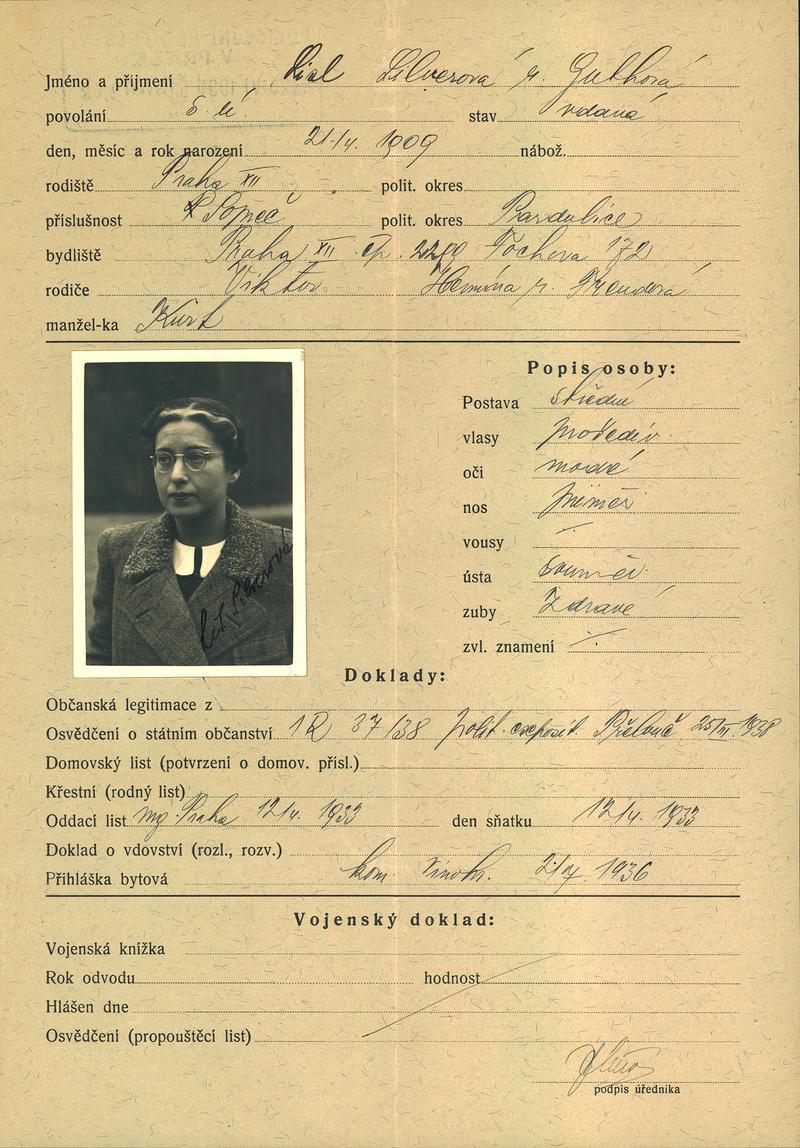 Jméno a příjmení Lisl Silverová r. Guthová
povolání stav vdaná
den, měsíc a rok narození 21./V. 1909 nábož.
rodiště Praha XII polit. okres
příslušnost Sopřeč polit. okres Pardubice
bydliště Praha XII čp. 2289 Fochova 172
rodiče Viktor r.
manžel-ka Kurt
Popis osoby:
Postava střední
vlasy prošediv.
oči modré
nos
vousy
ústa souměr.
zuby zdravé
zvl. znamení
Doklady:
Občanská legitimace z
Osvědčení o státním občanství 37/38 polit. exposit. Přelouč 25/III. 1938
Domovský list (potvrzení o domov. přísl.)
Křestní (rodný list)
Oddací list mg. Praha 12/V. 1933 den sňatku 12/V. 1933
Doklad o vdovství (rozl., rozv.)
Přihláška bytová kom. Vinoh. 1936
Vojenský doklad:
Vojenská knížka
Rok odvodu hodnost
Hlášen dne
Osvědčení (propouštěcí list)
podpis úředníka